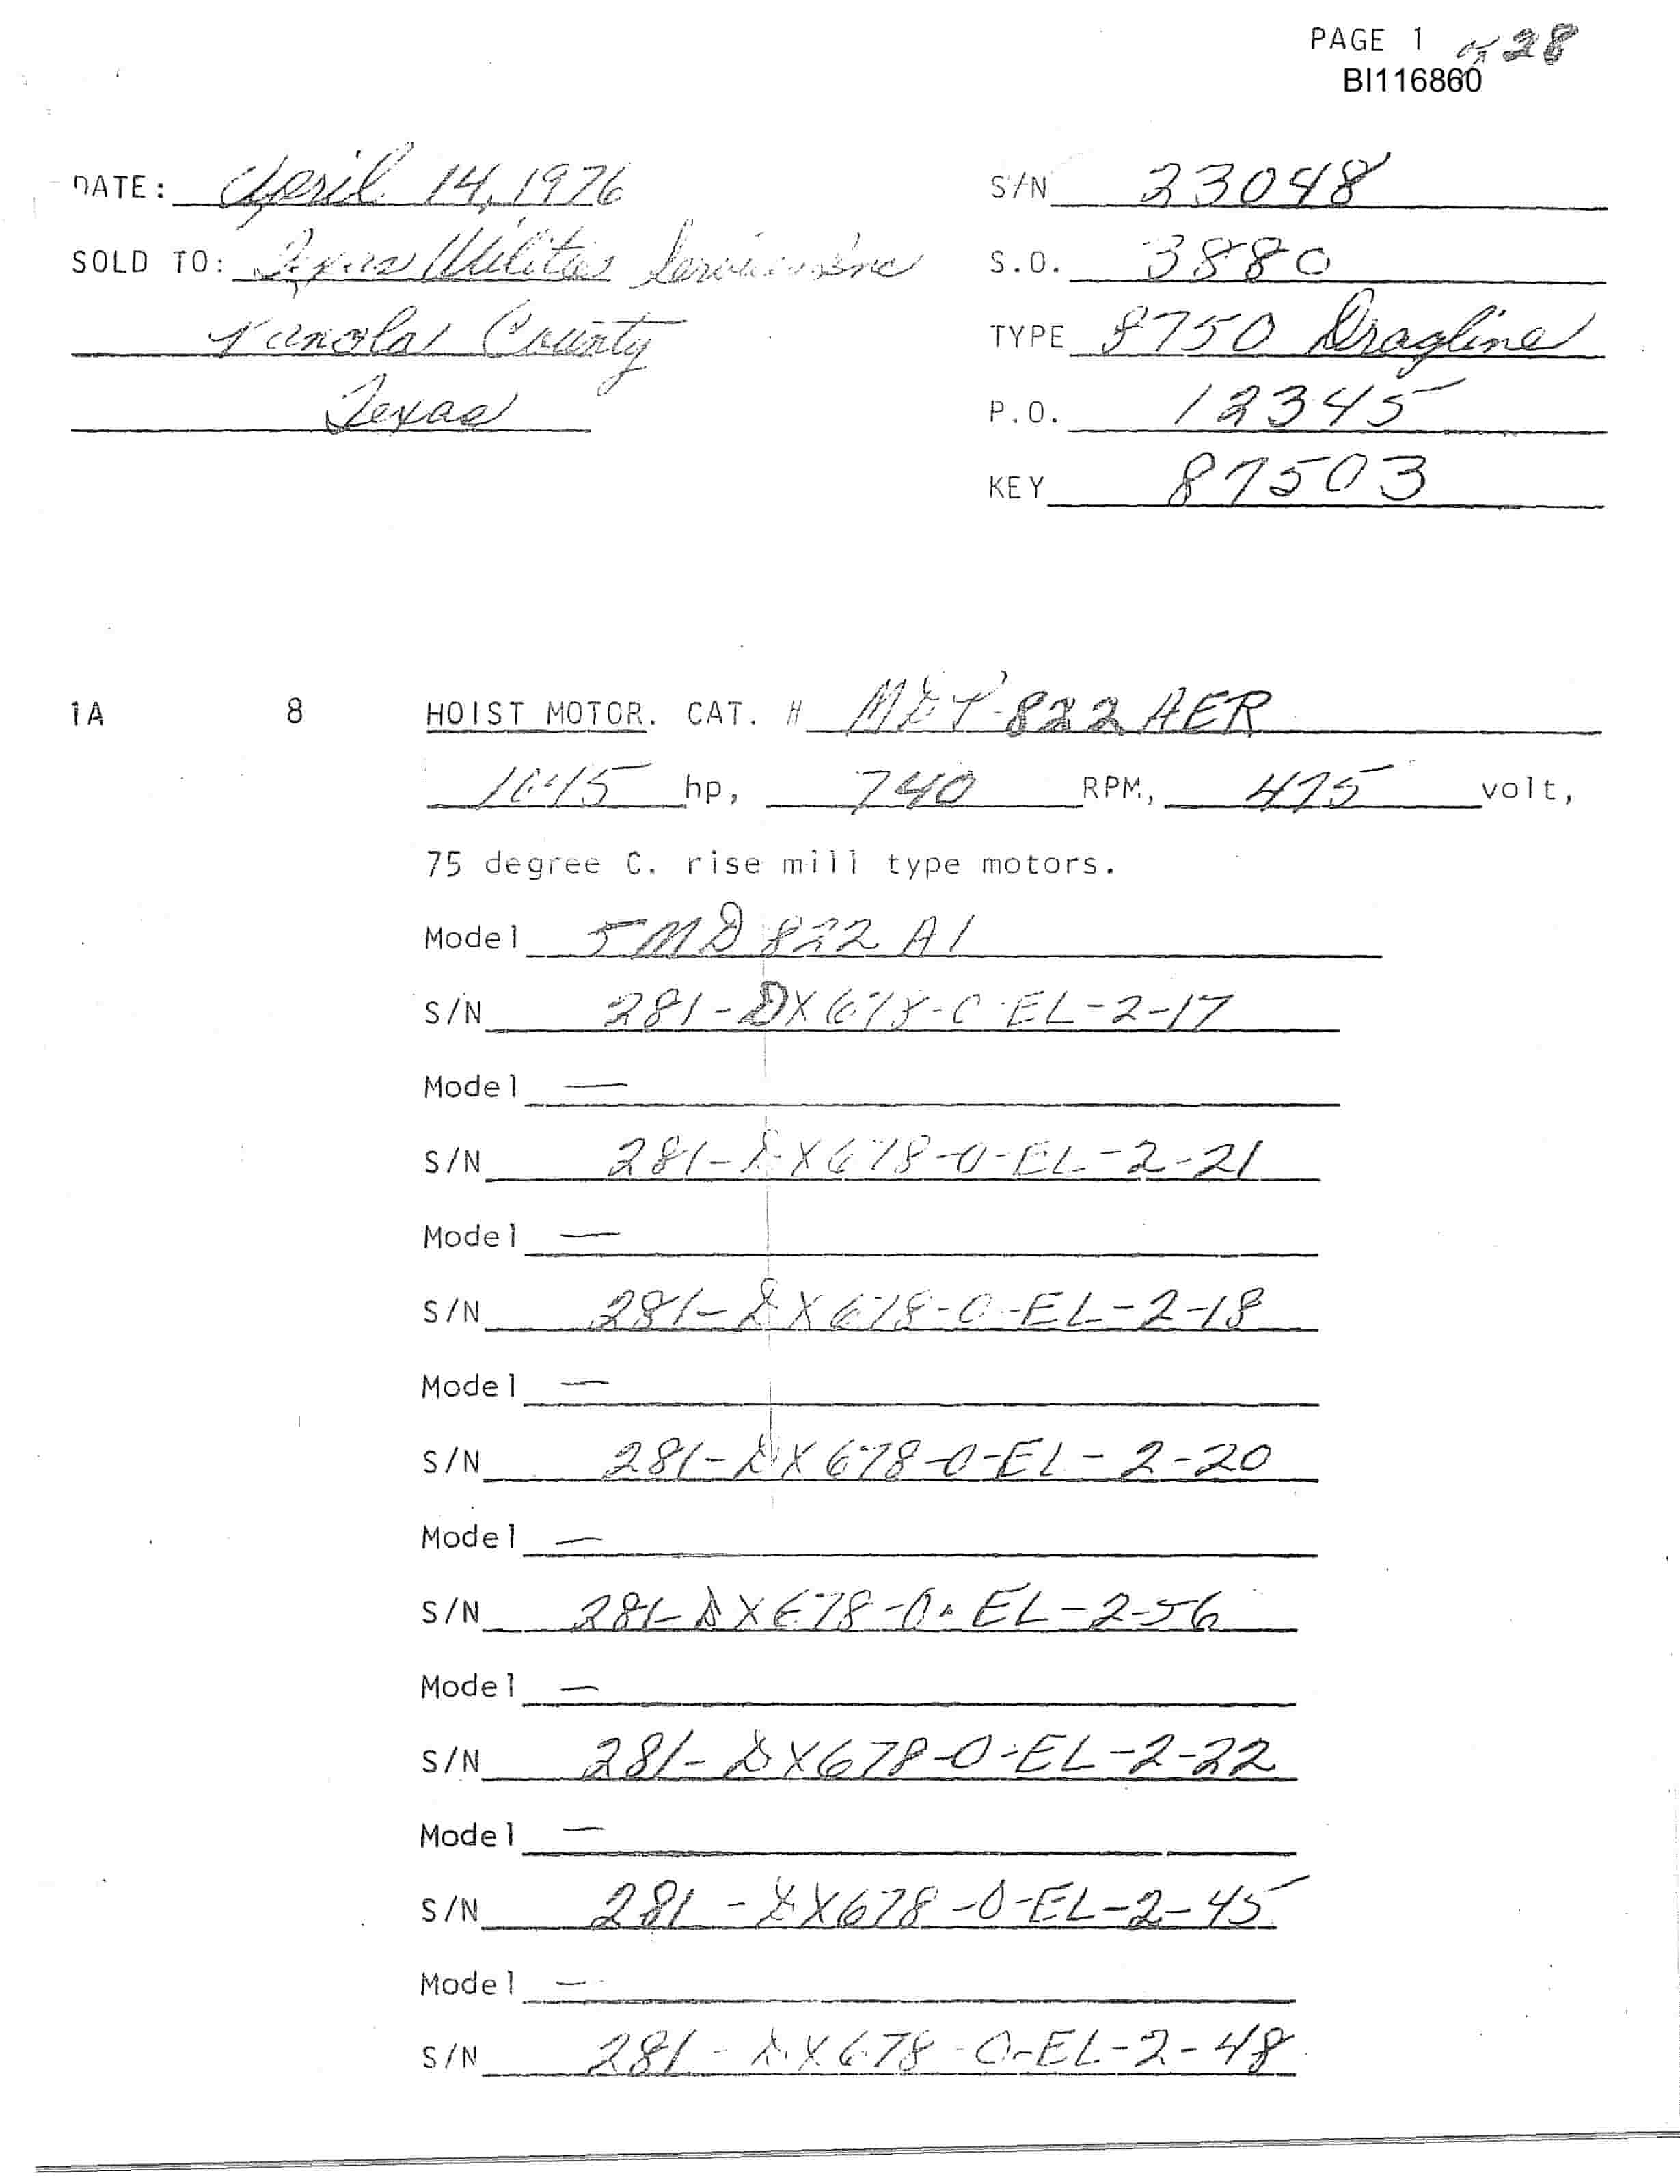 PAGE 1 of 28
BI116860
DATE: April 14, 1976
S/N 23048
SOLD TO: Texas Utilities Services Inc
S.O. 3880
Panola County
TYPE 8750 Dragline
Texas
P.O. 12345
KEY 87503
1A 8 HOIST MOTOR. CAT. # 822 AER
hp, 740 RPM, 475 volt,
75 degree C. rise mill type motors.
Model 5MD 822 A1
S/N 281-DX678-0-EL-2-17
Model —
S/N 281-DX678-0-EL-2-21
Model —
S/N 281-DX678-0-EL-2-18
Model —
S/N 281-DX678-0-EL-2-20
Model —
S/N 281-DX678-0-EL-2-56
Model —
S/N 281-DX678-0-EL-2-22
Model —
S/N 281-DX678-0-EL-2-45
Model —
S/N 281-DX678-0-EL-2-48